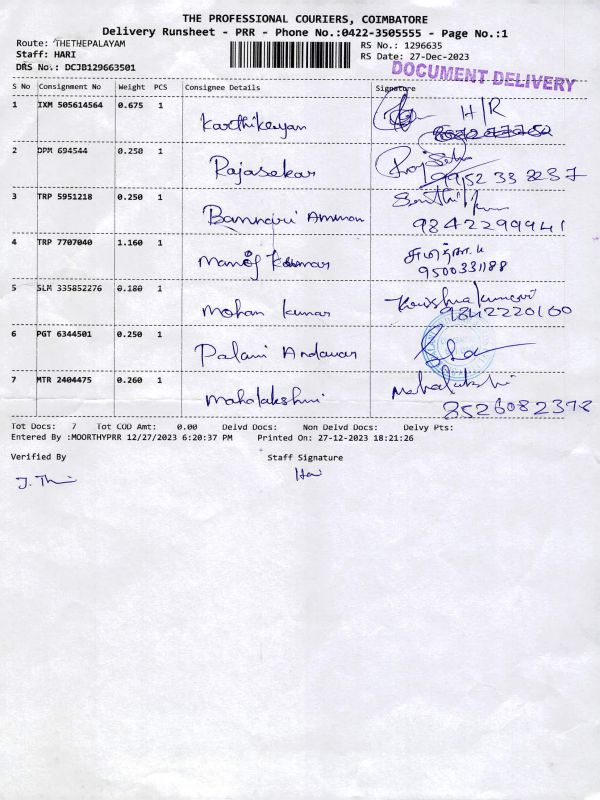 THE PROFESSIONAL COURIERS, COIMBATORE
Delivery Runsheet - PRR - Phone No.:0422-3505555 - Page No.:1
Route: THETHEPALAYAM
Staff: HARI
DRS No.: DCJB129663501
RS No.: 1296635
RS Date: 27-Dec-2023
DOCUMENT DELIVERY
S No Consignment No Weight PCS Consignee Details Signature
1 IXM 505614564 0.675 1 Karthikeyan H/R
2 DPM 694544 0.250 1 Rajasekar
9952 33 8237
3 TRP 5951218 0.250 1 Bannari Amman
9842299941
4 TRP 7707040 1.160 1 Manoj Kumar
9500331188
5 SLM 335852276 0.180 1 Mohan Kumar
9842220160
6 PGT 6344501 0.250 1 Palani Andavar
7 MTR 2404475 0.260 1 Mahalakshmi Mahalakshmi
Tot Docs: 7 Tot COD Amt: 0.00 Delvd Docs: Non Delvd Docs: Delvy Pts:
Entered By :MOORTHYPRR 12/27/2023 6:20:37 PM Printed On: 27-12-2023 18:21:26
Verified By Staff Signature
Hari